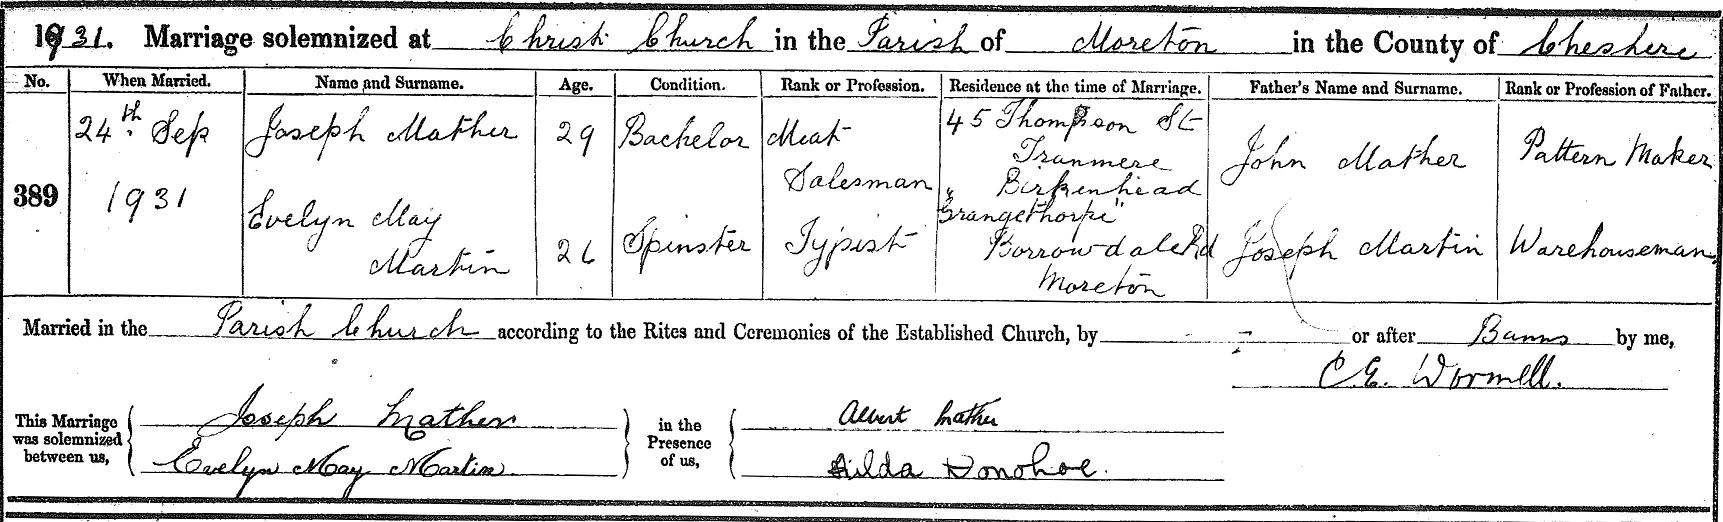 1931. Marriage solemnized at Christ Church in the Parish of Moreton in the County of Cheshire
No. When Married. Name and Surname. Age. Condition. Rank or Profession. Residence at the time of Marriage. Father's Name and Surname. Rank or Profession of Father.
389
24th. Sep
1931
Joseph Mather
29
Bachelor
Meat
Salesman
45 Thompson St
Tranmere
Birkenhead
John Mather
Pattern Maker
Evelyn May
Martin
26
Spinster
Typist
"Grangethorpe"
Borrowdale Rd
Moreton
Joseph Martin
Warehouseman
Married in the Parish Church according to the Rites and Ceremonies of the Established Church, by - or after Banns by me,
C. E. Wormell.
This Marriage
was solemnized
between us,
Joseph Mather
Evelyn May Martin
in the
Presence
of us,
Albert Mather
Hilda Donohoe.